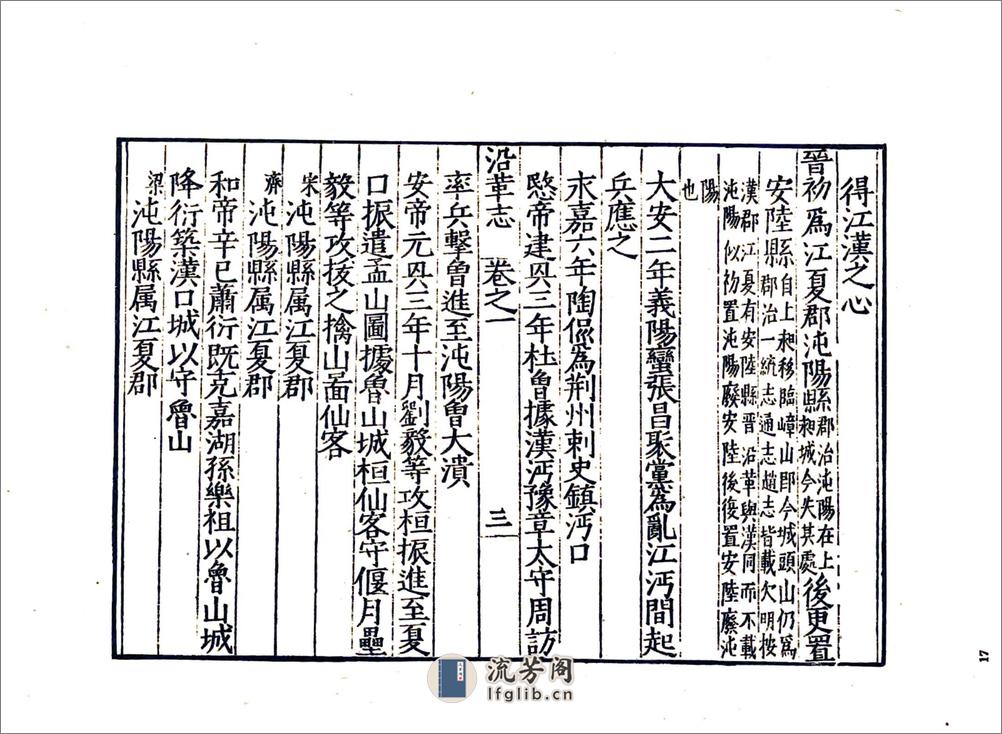 得江漢之心
晉初為江夏郡沌陽縣郡治沌陽在上昶城今失其處後更置
安陸縣自上昶移臨嶂山即今城頭山仍為郡治一統志通志趙志皆載欠明按
漢郡江夏有安陸縣晉沿革與漢同而不載沌陽似初置沌陽廢安陸後復置安陸廢沌
陽也
大安二年義陽蠻張昌聚黨為亂江沔間起
兵應之
永嘉六年陶侃為荆州刺史鎮沔口
愍帝建興三年杜曾據漢沔豫章太守周訪
沿革志 卷之一 三
率兵擊曾進至沌陽曾大潰
安帝元興三年十月劉毅等攻桓振進至夏
口振遣孟山圖據魯山城桓仙客守偃月壘
毅等攻拔之擒山啚仙客
宋沌陽縣属江夏郡
齊沌陽縣属江夏郡
和帝辛巳蕭衍既克嘉湖孫樂祖以魯山城
降衍築漢口城以守魯山
梁沌陽縣属江夏郡
17
流芳阁
lfglib.cn